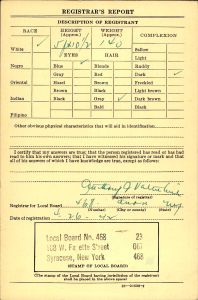 REGISTRAR'S REPORT
DESCRIPTION OF REGISTRANT
RACE
HEIGHT (Approx.)
WEIGHT (Approx.)
COMPLEXION
White ✓
140
Sallow
EYES
HAIR
Light
Negro
Blue
Blonde
Ruddy
Gray
Red
Dark ✓
Oriental
Hazel
Brown
Freckled
Brown
Black
Light brown
Indian
Black
Gray
Dark brown
Bald
Black
Filipino
Other obvious physical characteristics that will aid in identification
I certify that my answers are true; that the person registered has read or has had read to him his own answers; that I have witnessed his signature or mark and that all of his answers of which I have knowledge are true, except as follows:
(Signature of registrar)
Registrar for Local Board 468
(Number) (City or county) (State)
Date of registration
Local Board No. 468 23
Syracuse, New York 468
STAMP OF LOCAL BOARD
(The stamp of the Local Board having jurisdiction of the registrant shall be placed in the above space)